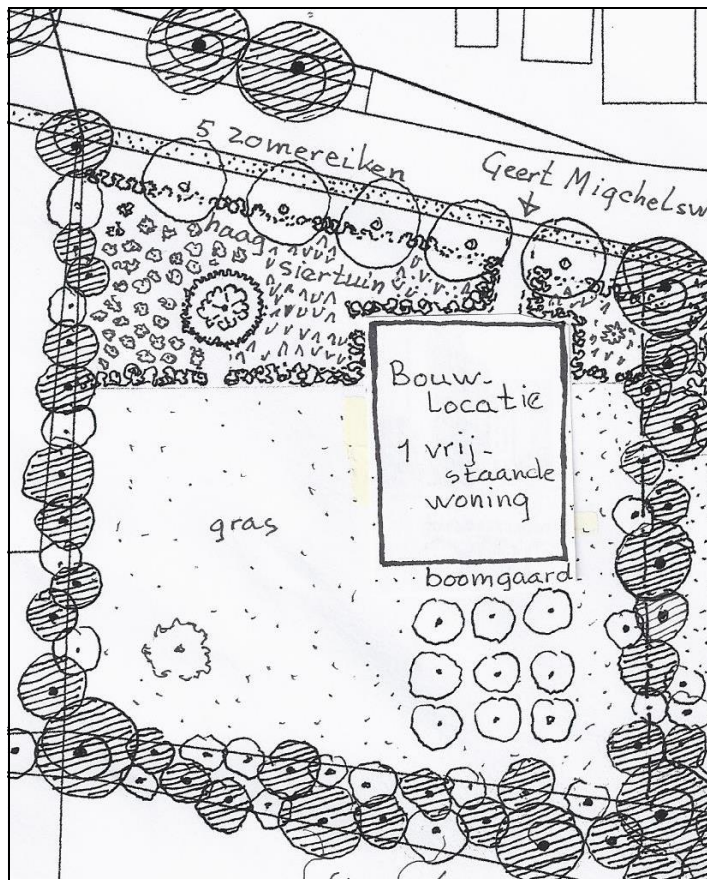 5 zomereiken
Geert Migchelsw
haag
siertuin
Bouw-
Locatie
1 vrij-
staande
woning
gras
boomgaard